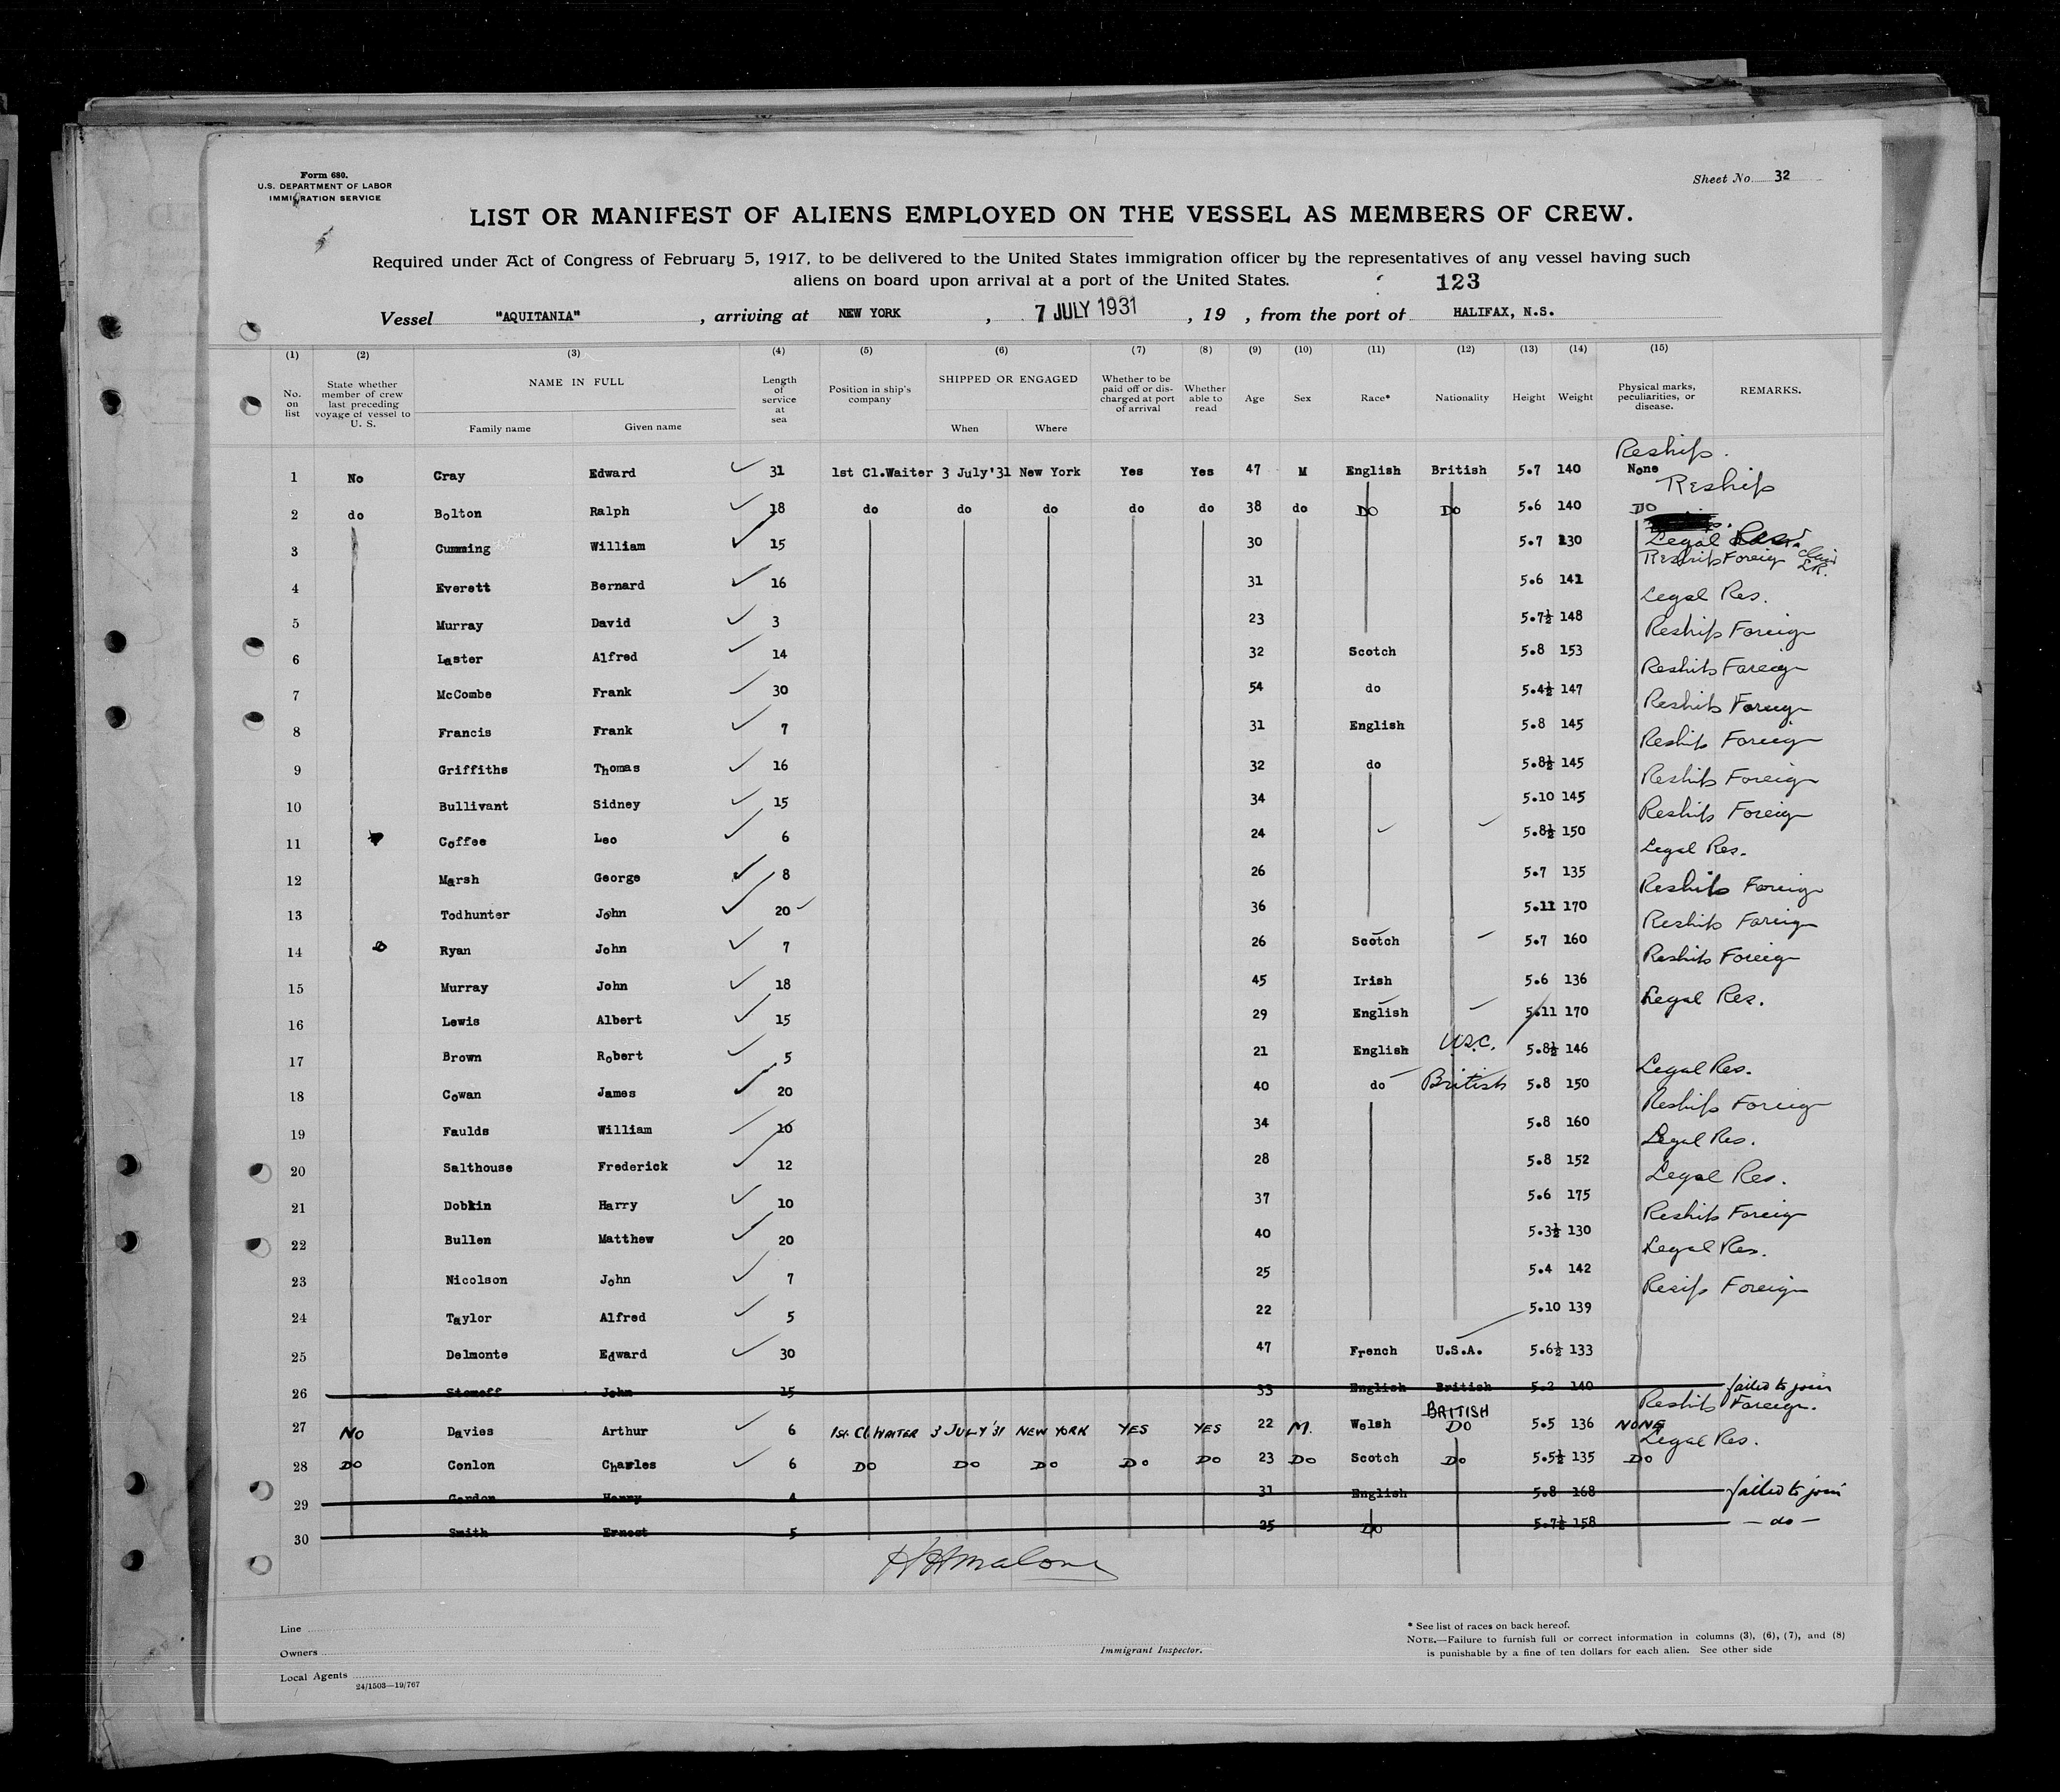 Form 680.
U.S. DEPARTMENT OF LABOR
IMMIGRATION SERVICE
Sheet No. 32
LIST OR MANIFEST OF ALIENS EMPLOYED ON THE VESSEL AS MEMBERS OF CREW.
Required under Act of Congress of February 5, 1917, to be delivered to the United States immigration officer by the representatives of any vessel having such
aliens on board upon arrival at a port of the United States.
123
Vessel "AQUITANIA", arriving at NEW YORK, 7 JULY 1931, 19 , from the port of HALIFAX, N.S.
(1) (2) (3) (4) (5) (6) (7) (8) (9) (10) (11) (12) (13) (14) (15)
No. on list State whether member of crew last preceding voyage of vessel to U. S. NAME IN FULL Family name Given name Length of service at sea Position in ship's company SHIPPED OR ENGAGED When Where Whether to be paid off or discharged at port of arrival Whether able to read Age Sex Race* Nationality Height Weight Physical marks, peculiarities, or disease. REMARKS.
Reship.
1 No Cray Edward 31 1st Cl.Waiter 3 July'31 New York Yes Yes 47 M English British 5.7 140 None
Reship
2 do Bolton Ralph 18 do do do do do 38 do DO DO 5.6 140 DO
3 Cumming William 15 30 5.7 130 Legal
Reship Foreign
4 Everett Bernard 16 31 5.6 141
Legal Res.
5 Murray David 3 23 5.7½ 148
Reship Foreign
6 Laster Alfred 14 32 Scotch 5.8 153
Reship Foreign
7 McCombe Frank 30 54 do 5.4½ 147
Reship Foreign
8 Francis Frank 7 31 English 5.8 145
Reship Foreign
9 Griffiths Thomas 16 32 do 5.8½ 145
Reship Foreign
10 Bullivant Sidney 15 34 5.10 145
Reship Foreign
11 Coffee Leo 6 24 5.8½ 150
Legal Res.
12 Marsh George 8 26 5.7 135
Reship Foreign
13 Todhunter John 20 36 5.11 170
Reship Foreign
14 Ryan John 7 26 Scotch 5.7 160
Reship Foreign
15 Murray John 18 45 Irish 5.6 136
Legal Res.
16 Lewis Albert 15 29 English 5.11 170
17 Brown Robert 5 21 English U.S.C. 5.8½ 146
Legal Res.
18 Cowan James 20 40 do British 5.8 150
Reship Foreign
19 Faulds William 10 34 5.8 160
Legal Res.
20 Salthouse Frederick 12 28 5.8 152
Legal Res.
21 Dobkin Harry 10 37 5.6 175
Reship Foreign
22 Bullen Matthew 20 40 5.3½ 130
Legal Res.
23 Nicolson John 7 25 5.4 142
Resip Foreign
24 Taylor Alfred 5 22 5.10 139
25 Delmonte Edward 30 47 French U.S.A. 5.6½ 133
26 John 15 33 English British 5.2 140 failed to join
Reship Foreign.
27 No Davies Arthur 6 1st. Cl. WAITER 3 JULY '31 NEW YORK YES YES 22 M. Welsh BRITISH DO 5.5 136 NONE
Legal Res.
28 DO Conlon Charles 6 DO DO DO DO DO 23 DO Scotch DO 5.5½ 135 DO
29 Gordon Henry 4 31 English 5.8 168 failed to join
30 Smith Ernest 5 25 DO 5.7½ 158 — do —
HHMalone
Line
Owners
Local Agents
24/1503—19/767
Immigrant Inspector.
* See list of races on back hereof.
NOTE.—Failure to furnish full or correct information in columns (3), (6), (7), and (8)
is punishable by a fine of ten dollars for each alien. See other side